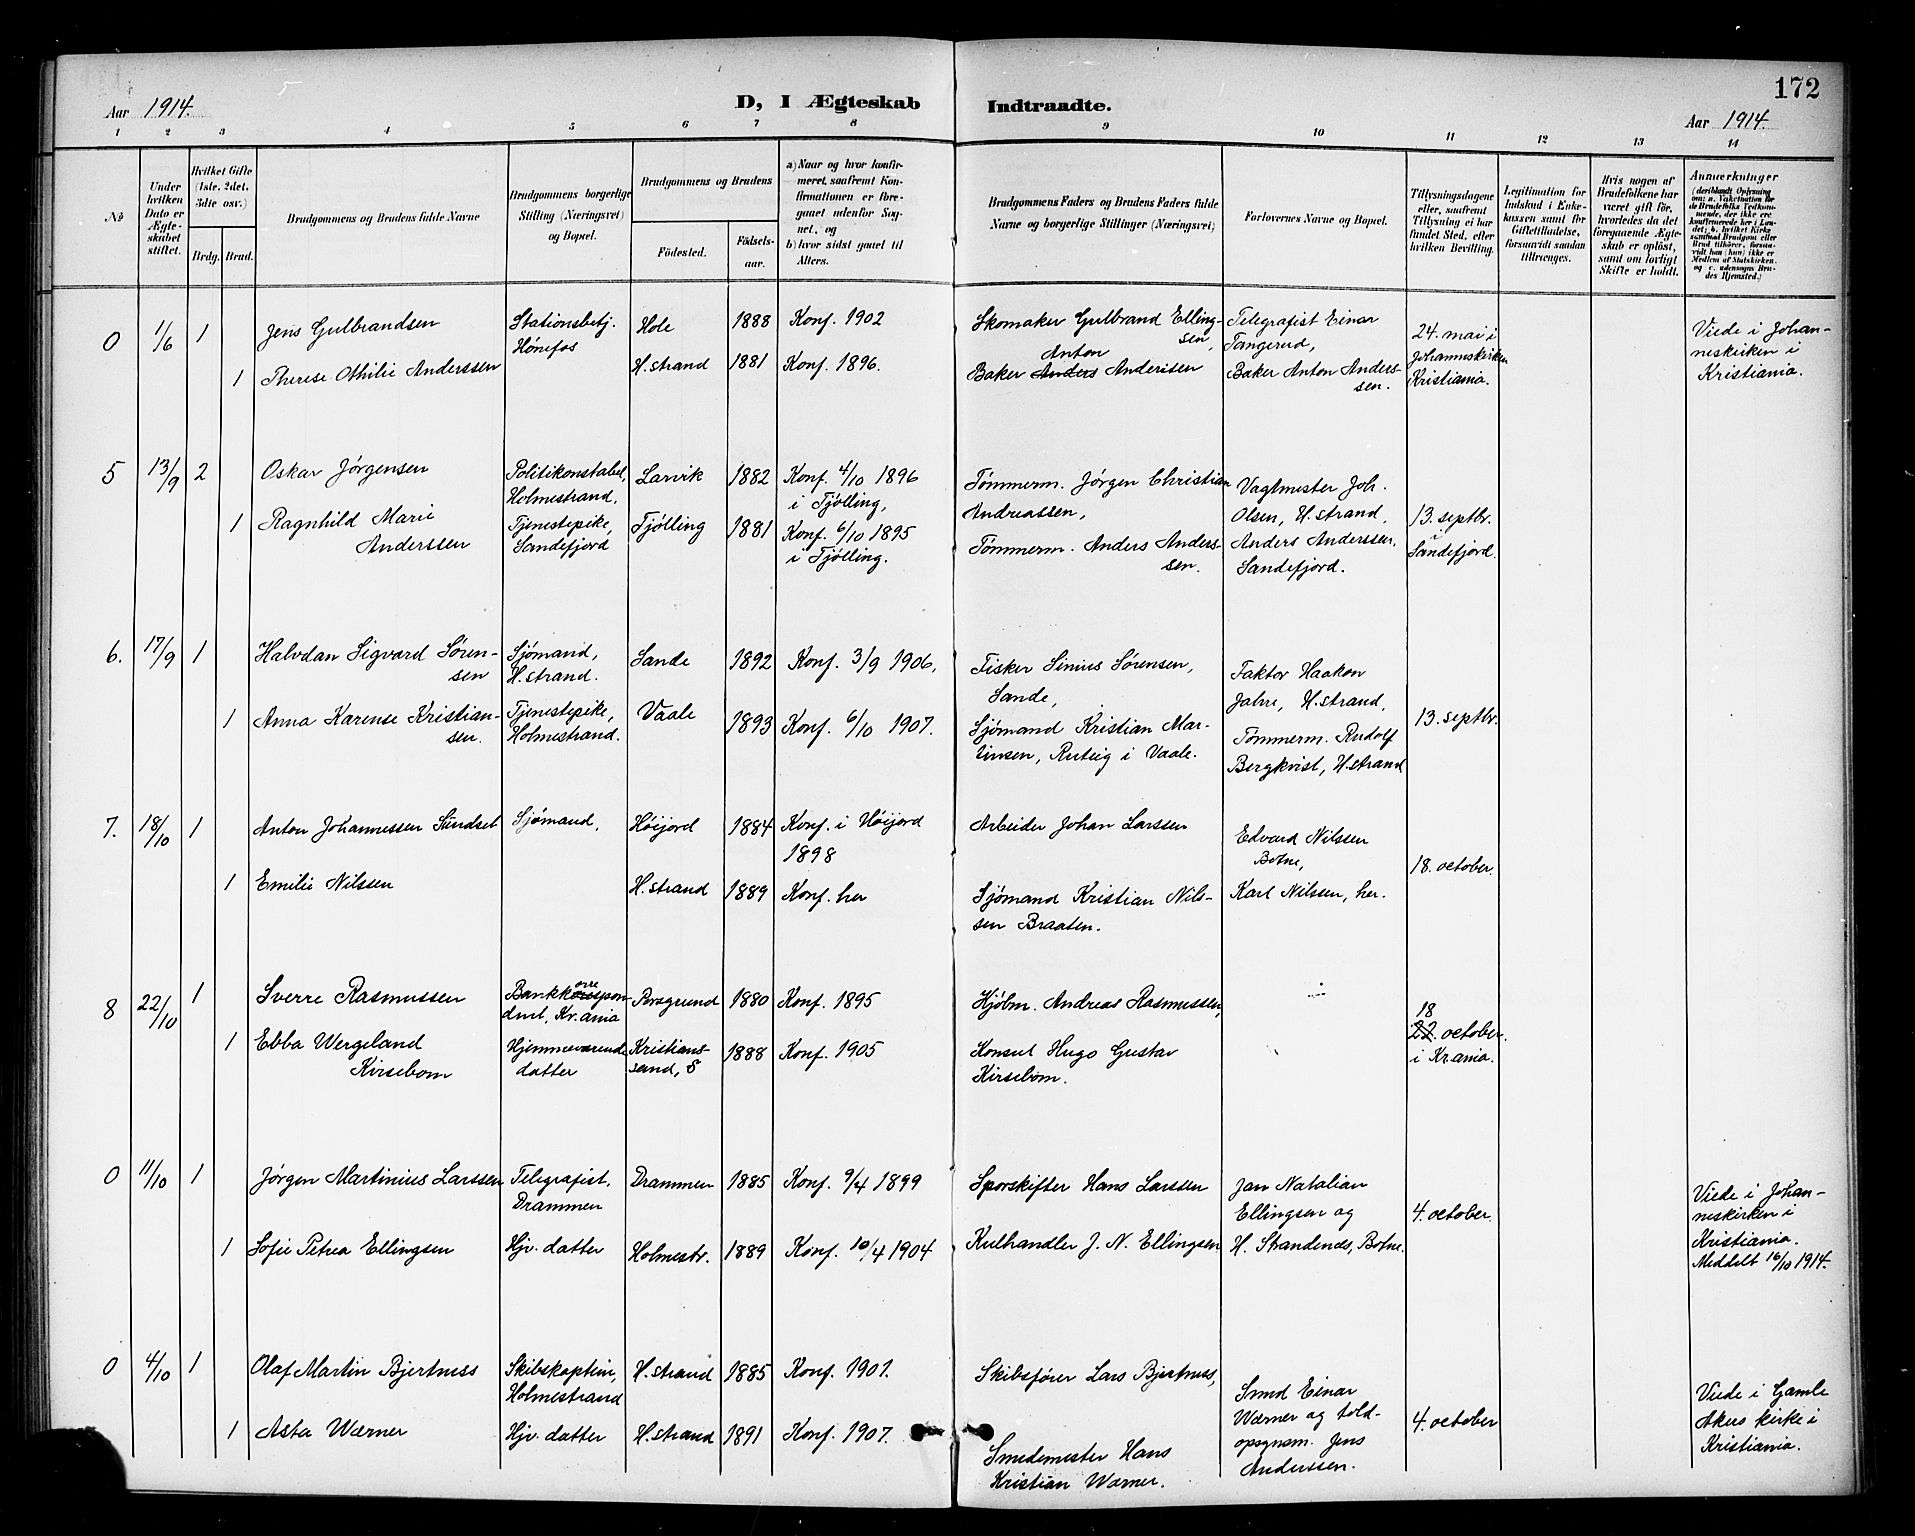 172
Aar 1914.
D, I Ægteskab Indtraadte.
Aar 1914.
1 2 3 4 5 6 7 8 9 10 11 12 13 14
No
Under hvilken Dato er Ægteskabet stiftet.
Hvilket Gifte (1ste, 2det, 3dte osv.)
Brdg. Brud.
Brudgommens og Brudens fulde Navne
Brudgommens borgerlige Stilling (Næringsvei) og Bopæl.
Brudgommens og Brudens
Födested.
Födselsaar.
a) Naar og hvor konfirmeret, saafremt Konfirmationen er foregaaet udenfor Sognet, og
b) hvor sidst gaaet til Alters.
Brudgommens Faders og Brudens Faders fulde Navne og borgerlige Stillinger (Næringsvei)
Forlovernes Navne og Bopæl.
Tillysningsdagene eller, saafremt Tillysning ei har fundet Sted, efter hvilken Bevilling.
Legitimation for Indskud i Enkekassen samt for Giftetilladelse, forsaavidt saadan tiltrænges.
Hvis nogen af Brudefolkene har været gift för, hvorledes da det foregaaende Ægteskab er oplöst, samt om lovligt Skifte er holdt.
Anmærkninger (deriblandt Oplysning om: a. Vakcination for de Brudefolks Vedkommende, der ikke ere konfirmerede her i Landet; b. hvilket Kirkesamfund Brudgom eller Brud tilhörer, forsaavidt han (hun) ikke er Medlem af Statskirken, og c. udensogns Brudes Hjemsted.)
0 1/6 1 Jens Gulbrandsen
Stationsbetj. Hönefos
Hole 1888 Konf. 1902
Skomaker Gulbrand Ellingsen,
Telegrafist Einar Tangerud,
24. mai i Johanneskirken Kristiania.
Viede i Johanneskirken i Kristiania.
1 Therese Othilie Anderssen
H.strand 1881 Konf. 1896.
Baker Anders Anton Anderssen
Baker Anton Anderssen.
5 13/9 2 Oskar Jörgensen
Politikonstabel, Holmestrand,
Larvik 1882 Konf. 4/10 1896 i Tjölling,
Tömmerm. Jörgen Christian Andreassen,
Vagtmester Joh. Olsen, H.strand,
13. septbr. i Sandefjord.
1 Ragnhild Marie Anderssen
Tjenestepike, Sandefjord
Tjölling 1881 Konf. 6/10 1895 i Tjölling.
Tömmerm. Anders Anderssen.
Anders Anderssen, Sandefjord.
6. 17/9 1 Halvdan Sigvard Sörensen
Sjömand, H.strand.
Sande 1892 Konf. 3/9 1906,
Fisker Sinius Sörensen, Sande,
Faktor Haakon Jahre, H.strand,
13. septbr.
1 Anna Karense Kristiansen.
Tjenestepike, Holmestrand.
Vaale 1893 Konf. 6/10 1907.
Sjömand Kristian Martinsen, Ruteig i Vaale.
Tömmerm. Rudolf Bergkvist, H.strand
7. 18/10 1 Anton Johannessen Sundset
Sjömand,
Höijord 1884 Konf. i Höijord 1898
Arbeider Johan Larssen
Edvard Nilssen Botne,
18. october.
1 Emilie Nilssen
H.strand 1889 Konf. her
Sjömand Kristian Nilssen Braaten.
Karl Nilssen, her.
8 22/10 1 Sverre Rasmussen
Bankkorrespondent, Kr.ania
Porsgrund 1880 Konf. 1895
Hjölm. Andreas Rasmussen,
18 22. october. i Krania.
1 Ebba Wergeland Kirsebom
Hjemmeværende datter
Kristianssand, S 1888 Konf. 1905
Konsul Hugo Gustav Kirsebom.
0 11/10 1 Jörgen Martinius Larssen
Telegrafist, Drammen
Drammen 1885 Konf. 9/4 1899
Sporskifter Hans Larssen
Jan Natalian Ellingsen og
4. october.
Viede i Johanneskirken i Kristiania. Meddelt 16/10 1914.
1 Sofie Petrea Ellingsen
Hjv. datter
Holmestr. 1889 Konf. 10/4 1904
Kulhandler J. N. Ellingsen
H. Strandenæs, Botne.
0 4/10 1 Olaf Martin Bjertnæss
Skibskaptein, Holmestrand
H.strand 1885 Konf. 1901.
Skibsförer Lars Bjertnæss,
Smed Einar Wærner og toldopsynsm. Jens Anderssen.
4. october
Viede i Gamle Akers kirke i Kristiania.
1 Asta Wærner
Hjv. datter
H.strand 1891 Konf. 1907.
Smedemester Hans Kristian Wærner.